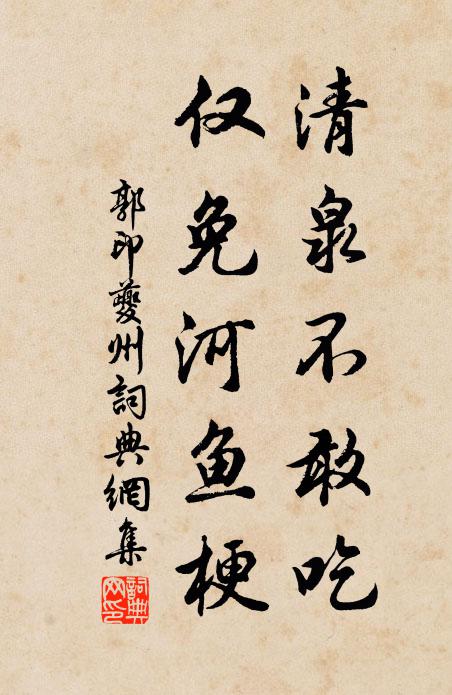 清泉不敢吃
仅免河鱼梗
郭印夔州詞典網集
詞典网印